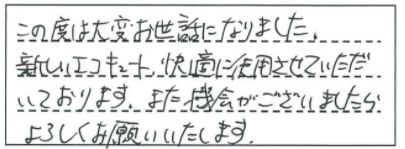 この度は大変お世話になりました。
新しいエコキュート、快適に使用させていただ
いております。また機会がございましたら
よろしくお願いいたします。